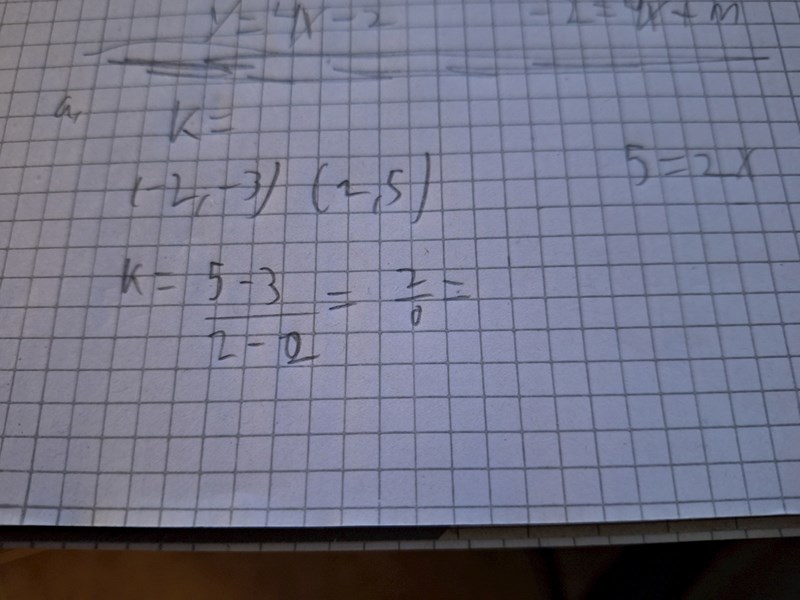 y=4x-2 -2=4x+m
a,
k=
(-2,-3) (2,5)
5=2x
k= 5-3 / 2-2 = 2/0 =